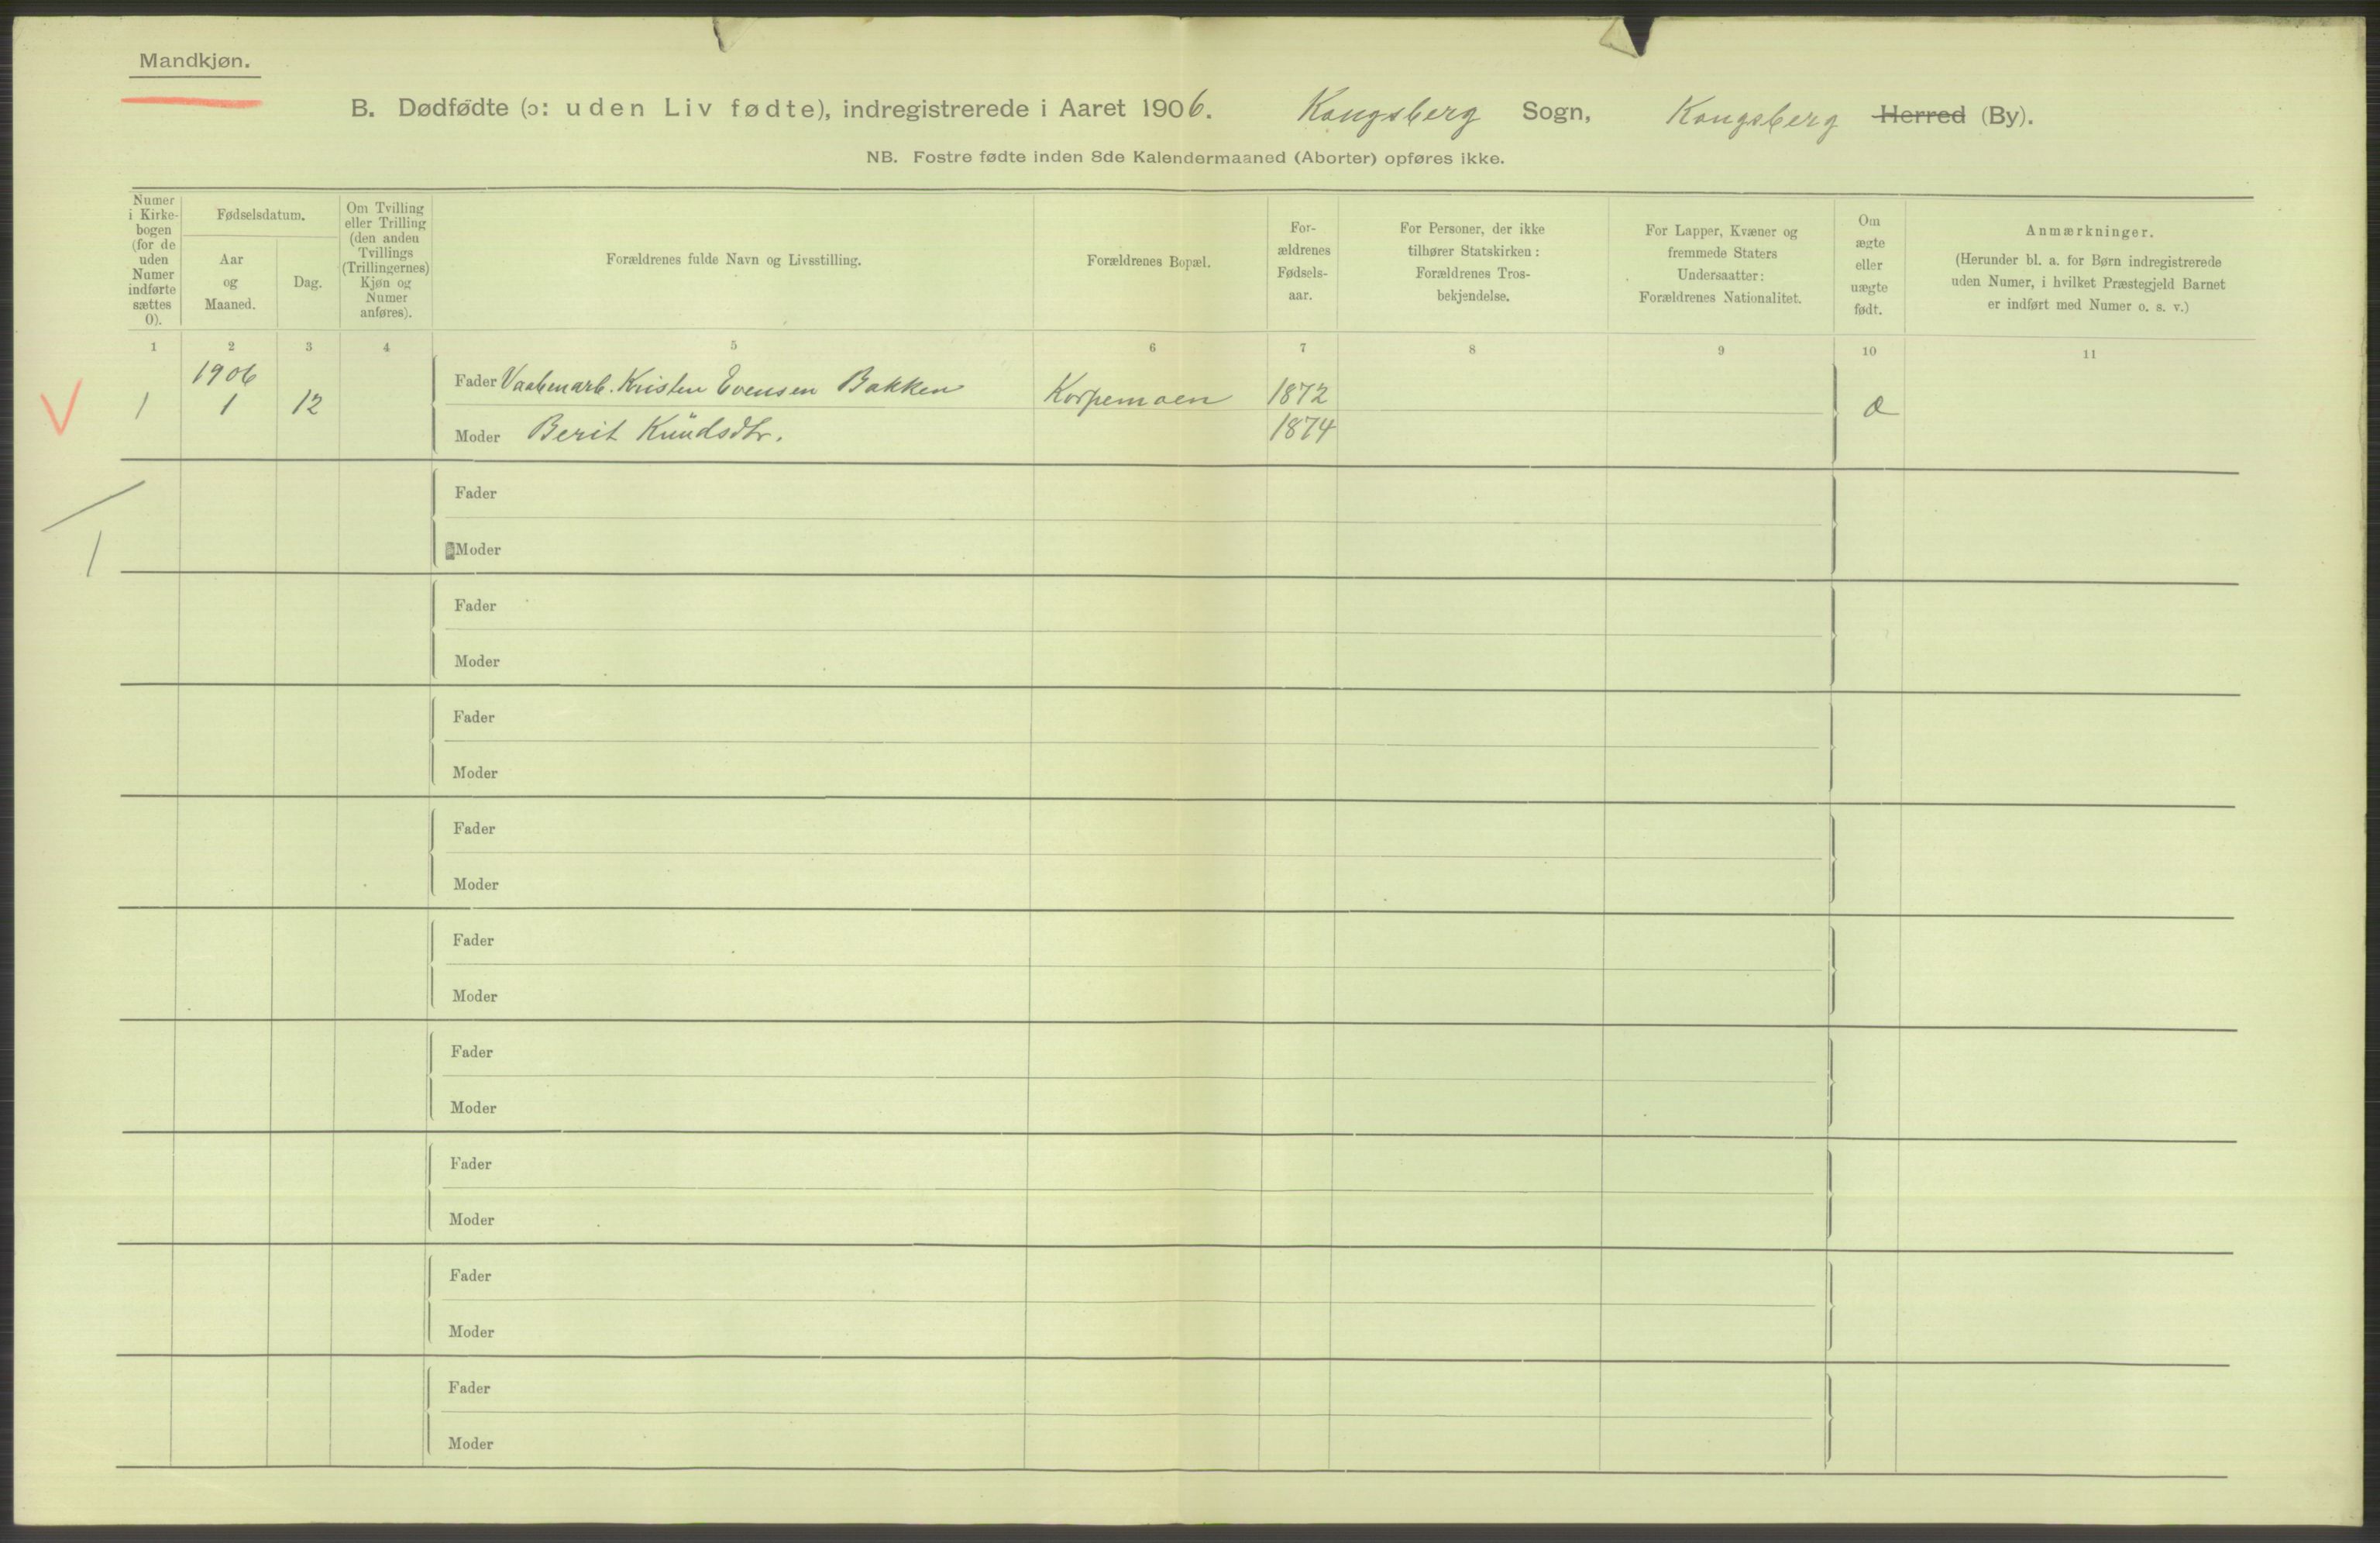 Mandkjøn.
B. Dødfødte (ɔ: uden Liv fødte), indregistrerede i Aaret 1906. Kongsberg Sogn, Kongsberg Herred (By).
NB. Fostre fødte inden 8de Kalendermaaned (Aborter) opføres ikke.
Numer
i Kirke-
bogen
(for de
uden
Numer
indførte
sættes
0).
Fødselsdatum.
Aar
og
Maaned.
Dag.
Om Tvilling
eller Trilling
(den anden
Tvillings
(Trillingernes)
Kjøn og
Numer
anføres).
Forældrenes fulde Navn og Livsstilling.
Forældrenes Bopæl.
For-
ældrenes
Fødsels-
aar.
For Personer, der ikke
tilhører Statskirken:
Forældrenes Tros-
bekjendelse.
For Lapper, Kvæner og
fremmede Staters
Undersaatter:
Forældrenes Nationalitet.
Om
ægte
eller
uægte
født.
Anmærkninger.
(Herunder bl. a. for Børn indregistrerede
uden Numer, i hvilket Præstegjeld Barnet
er indført med Numer o. s. v.)
1 2 3 4 5 6 7 8 9 10 11
1906
V 1 1 12 Fader Vaabenarb. Kristen Evensen Bakken Korpemoen 1872 æ
Moder Berit Knüdsdtr. 1874
Fader
Moder
1
Fader
Moder
Fader
Moder
Fader
Moder
Fader
Moder
Fader
Moder
Fader
Moder
Fader
Moder
Fader
Moder